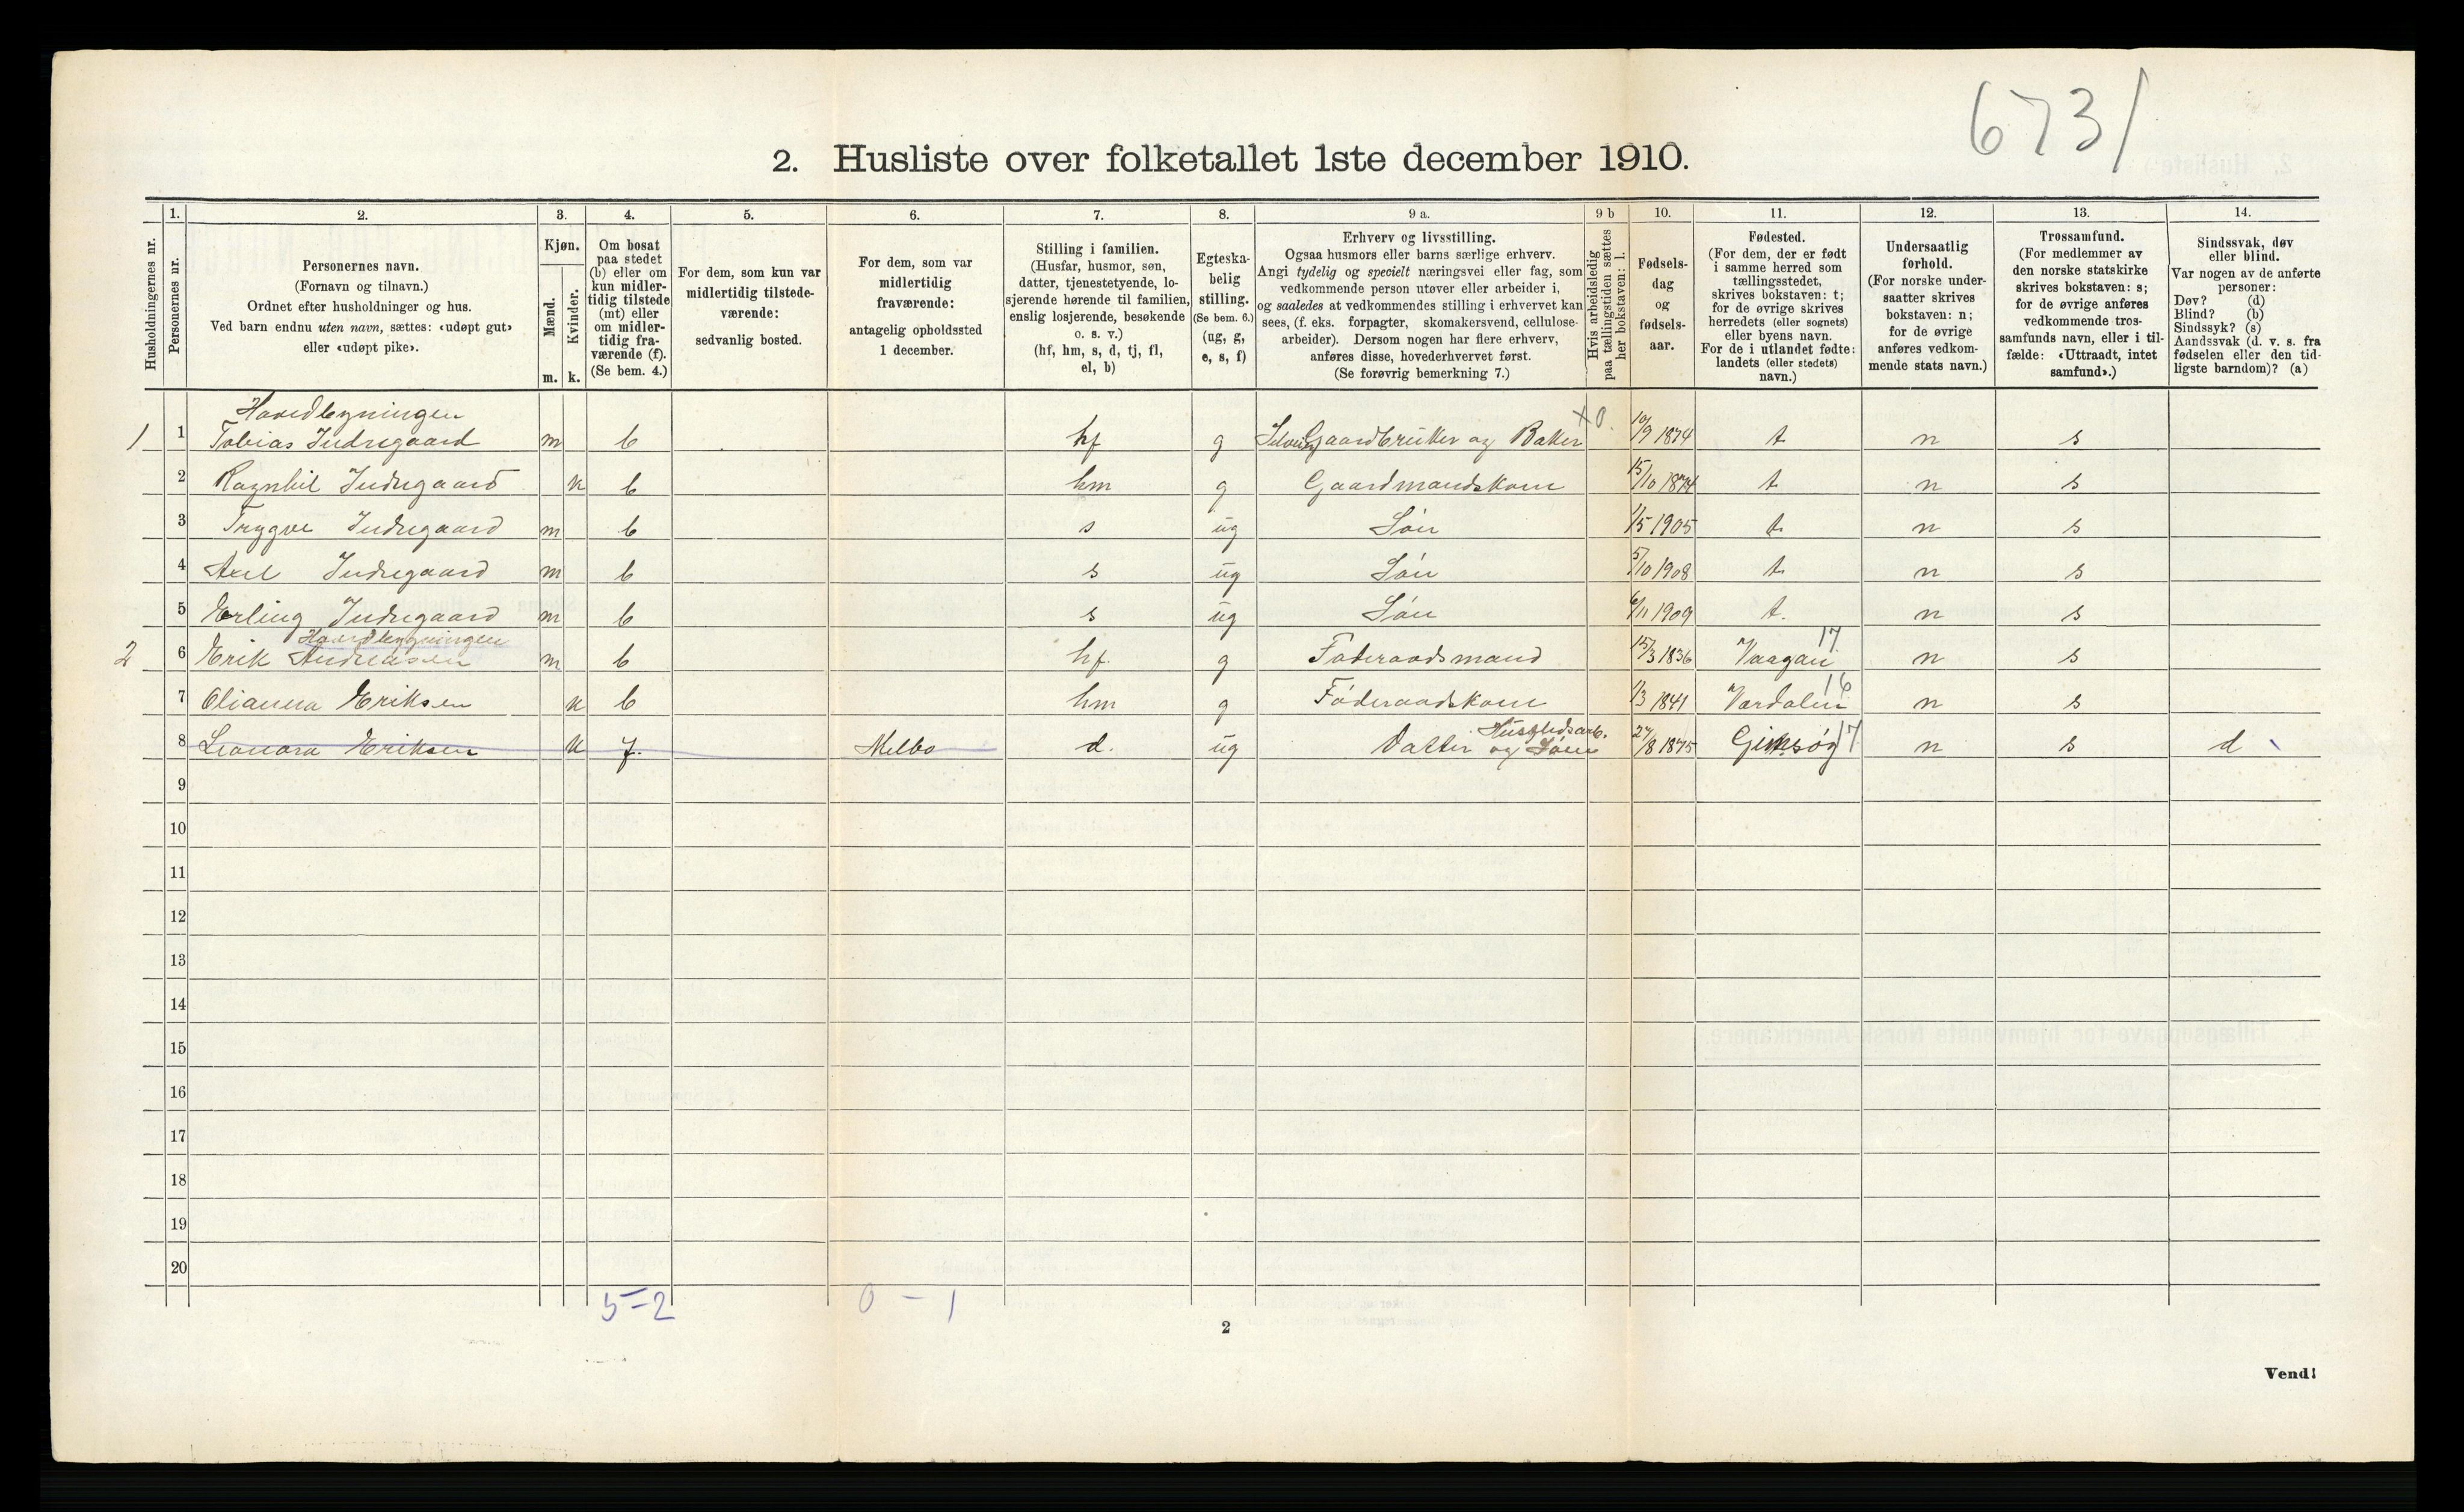 6731
2. Husliste over folketallet 1ste december 1910.
Husholdningernes nr.
1. Personernes nr.
2. Personernes navn.
(Fornavn og tilnavn.)
Ordnet efter husholdninger og hus.
Ved barn endnu uten navn, sættes: «udøpt gut»
eller «udøpt pike».
3. Kjøn.
Mænd. Kvinder.
m. k.
4. Om bosat
paa stedet
(b) eller om
kun midler-
tidig tilstede
(mt) eller
om midler-
tidig fra-
værende (f).
(Se bem. 4.)
5. For dem, som kun var
midlertidig tilstede-
værende:
sedvanlig bosted.
6. For dem, som var
midlertidig
fraværende:
antagelig opholdssted
1 december.
7. Stilling i familien.
(Husfar, husmor, søn,
datter, tjenestetyende, lo-
sjerende hørende til familien,
enslig losjerende, besøkende
o. s. v.)
(hf, hm, s, d, tj, fl,
el, b)
8. Egteska-
belig
stilling.
(Se bem. 6.)
(ug, g,
e, s, f)
9 a. Erhverv og livsstilling.
Ogsaa husmors eller barns særlige erhverv.
Angi tydelig og specielt næringsvei eller fag, som
vedkommende person utøver eller arbeider i,
og saaledes at vedkommendes stilling i erhvervet kan
sees, (f. eks. forpagter, skomakersvend, cellulose-
arbeider). Dersom nogen har flere erhverv,
anføres disse, hovederhvervet først.
(Se forøvrig bemerkning 7.)
9 b Hvis arbeidsledig
paa tællingstiden sættes
her bokstaven: l.
10. Fødsels-
dag
og
fødsels-
aar.
11. Fødested.
(For dem, der er født
i samme herred som
tællingsstedet,
skrives bokstaven: t;
for de øvrige skrives
herredets (eller sognets)
eller byens navn.
For de i utlandet fødte:
landets (eller stedets)
navn.)
12. Undersaatlig
forhold.
(For norske under-
saatter skrives
bokstaven: n;
for de øvrige
anføres vedkom-
mende stats navn.)
13. Trossamfund.
(For medlemmer av
den norske statskirke
skrives bokstaven: s;
for de øvrige anføres
vedkommende tros-
samfunds navn, eller i til-
fælde: «Uttraadt, intet
samfund».)
14. Sindssvak, døv
eller blind.
Var nogen av de anførte
personer:
Døv? (d)
Blind? (b)
Sindssyk? (s)
Aandssvak (d. v. s. fra
fødselen eller den tid-
ligste barndom)? (a)
Hovedbygningen
1 1 Tobias Indregaard m b hf g Selveier Gaardbruker og Baker x0. 10/9 1874 t n s
2 Ragnhil Indregaard k b hm g Gaardmandskone 15/10 1874 t n s
3 Trygve Indregaard m b s ug Søn 1/5 1905 t. n s
4 Axel Indregaard m b s ug Søn 5/10 1908 t. n s
5 Erling Indregaard m b s ug Søn 6/11 1909 t. n s
Hovedbygningen
2 6 Erik Andreasen m b hf. g Føderaadsmand 15/3 1836 Vaagan 17 n s
7 Olianna Eriksen k b hm g Føderaadskone 1/3 1841 Værdalen 16 n s
8 Leonora Eriksen k f. Melbo d. ug Datter og Husflidsarb. 27/8 1875 Gimsøy 17 n s d
9
10
11
12
13
14
15
16
17
18
19
20
5-2 0-1
2
Vend!